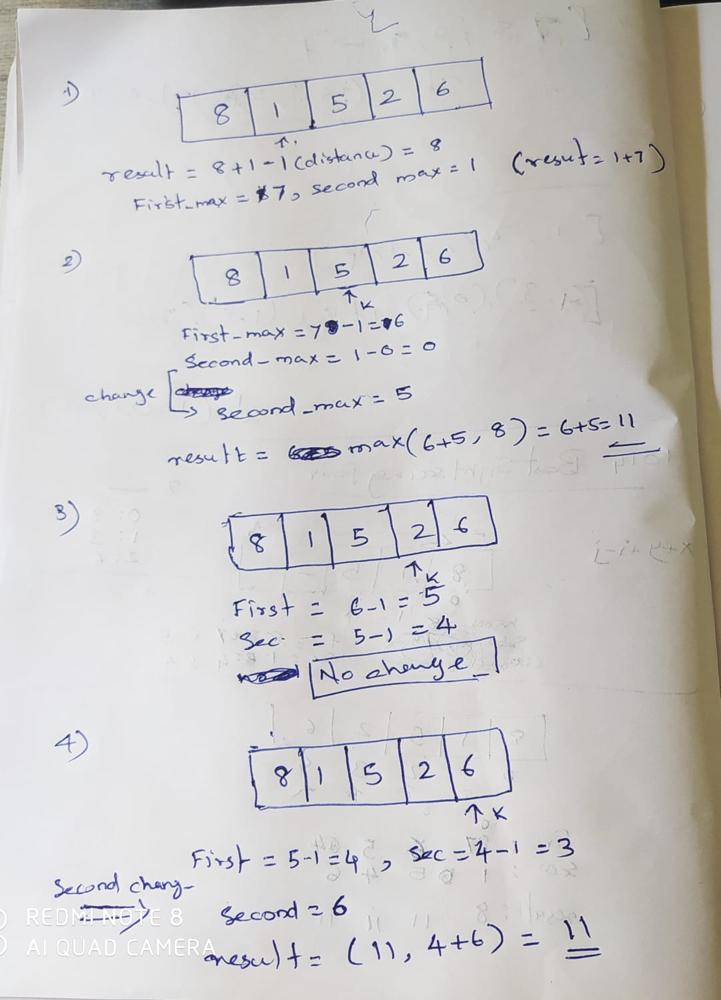 1)
8 1 5 2 6
result = 8+1-1(distance) = 8
First_max = 7, second max = 1 (result = 1+7)
2)
8 1 5 2 6
K
First_max = 7-1 = 6
Second_max = 1-0 = 0
change
second_max = 5
result = max(6+5, 8) = 6+5 = 11
3)
8 1 5 2 6
K
First = 6-1 = 5
Sec. = 5-1 = 4
No change
4)
8 1 5 2 6
K
First = 5-1 = 4, Sec = 4-1 = 3
Second chang-
Second = 6
result = (11, 4+6) = 11
REDMI NOTE 8
AI QUAD CAMERA